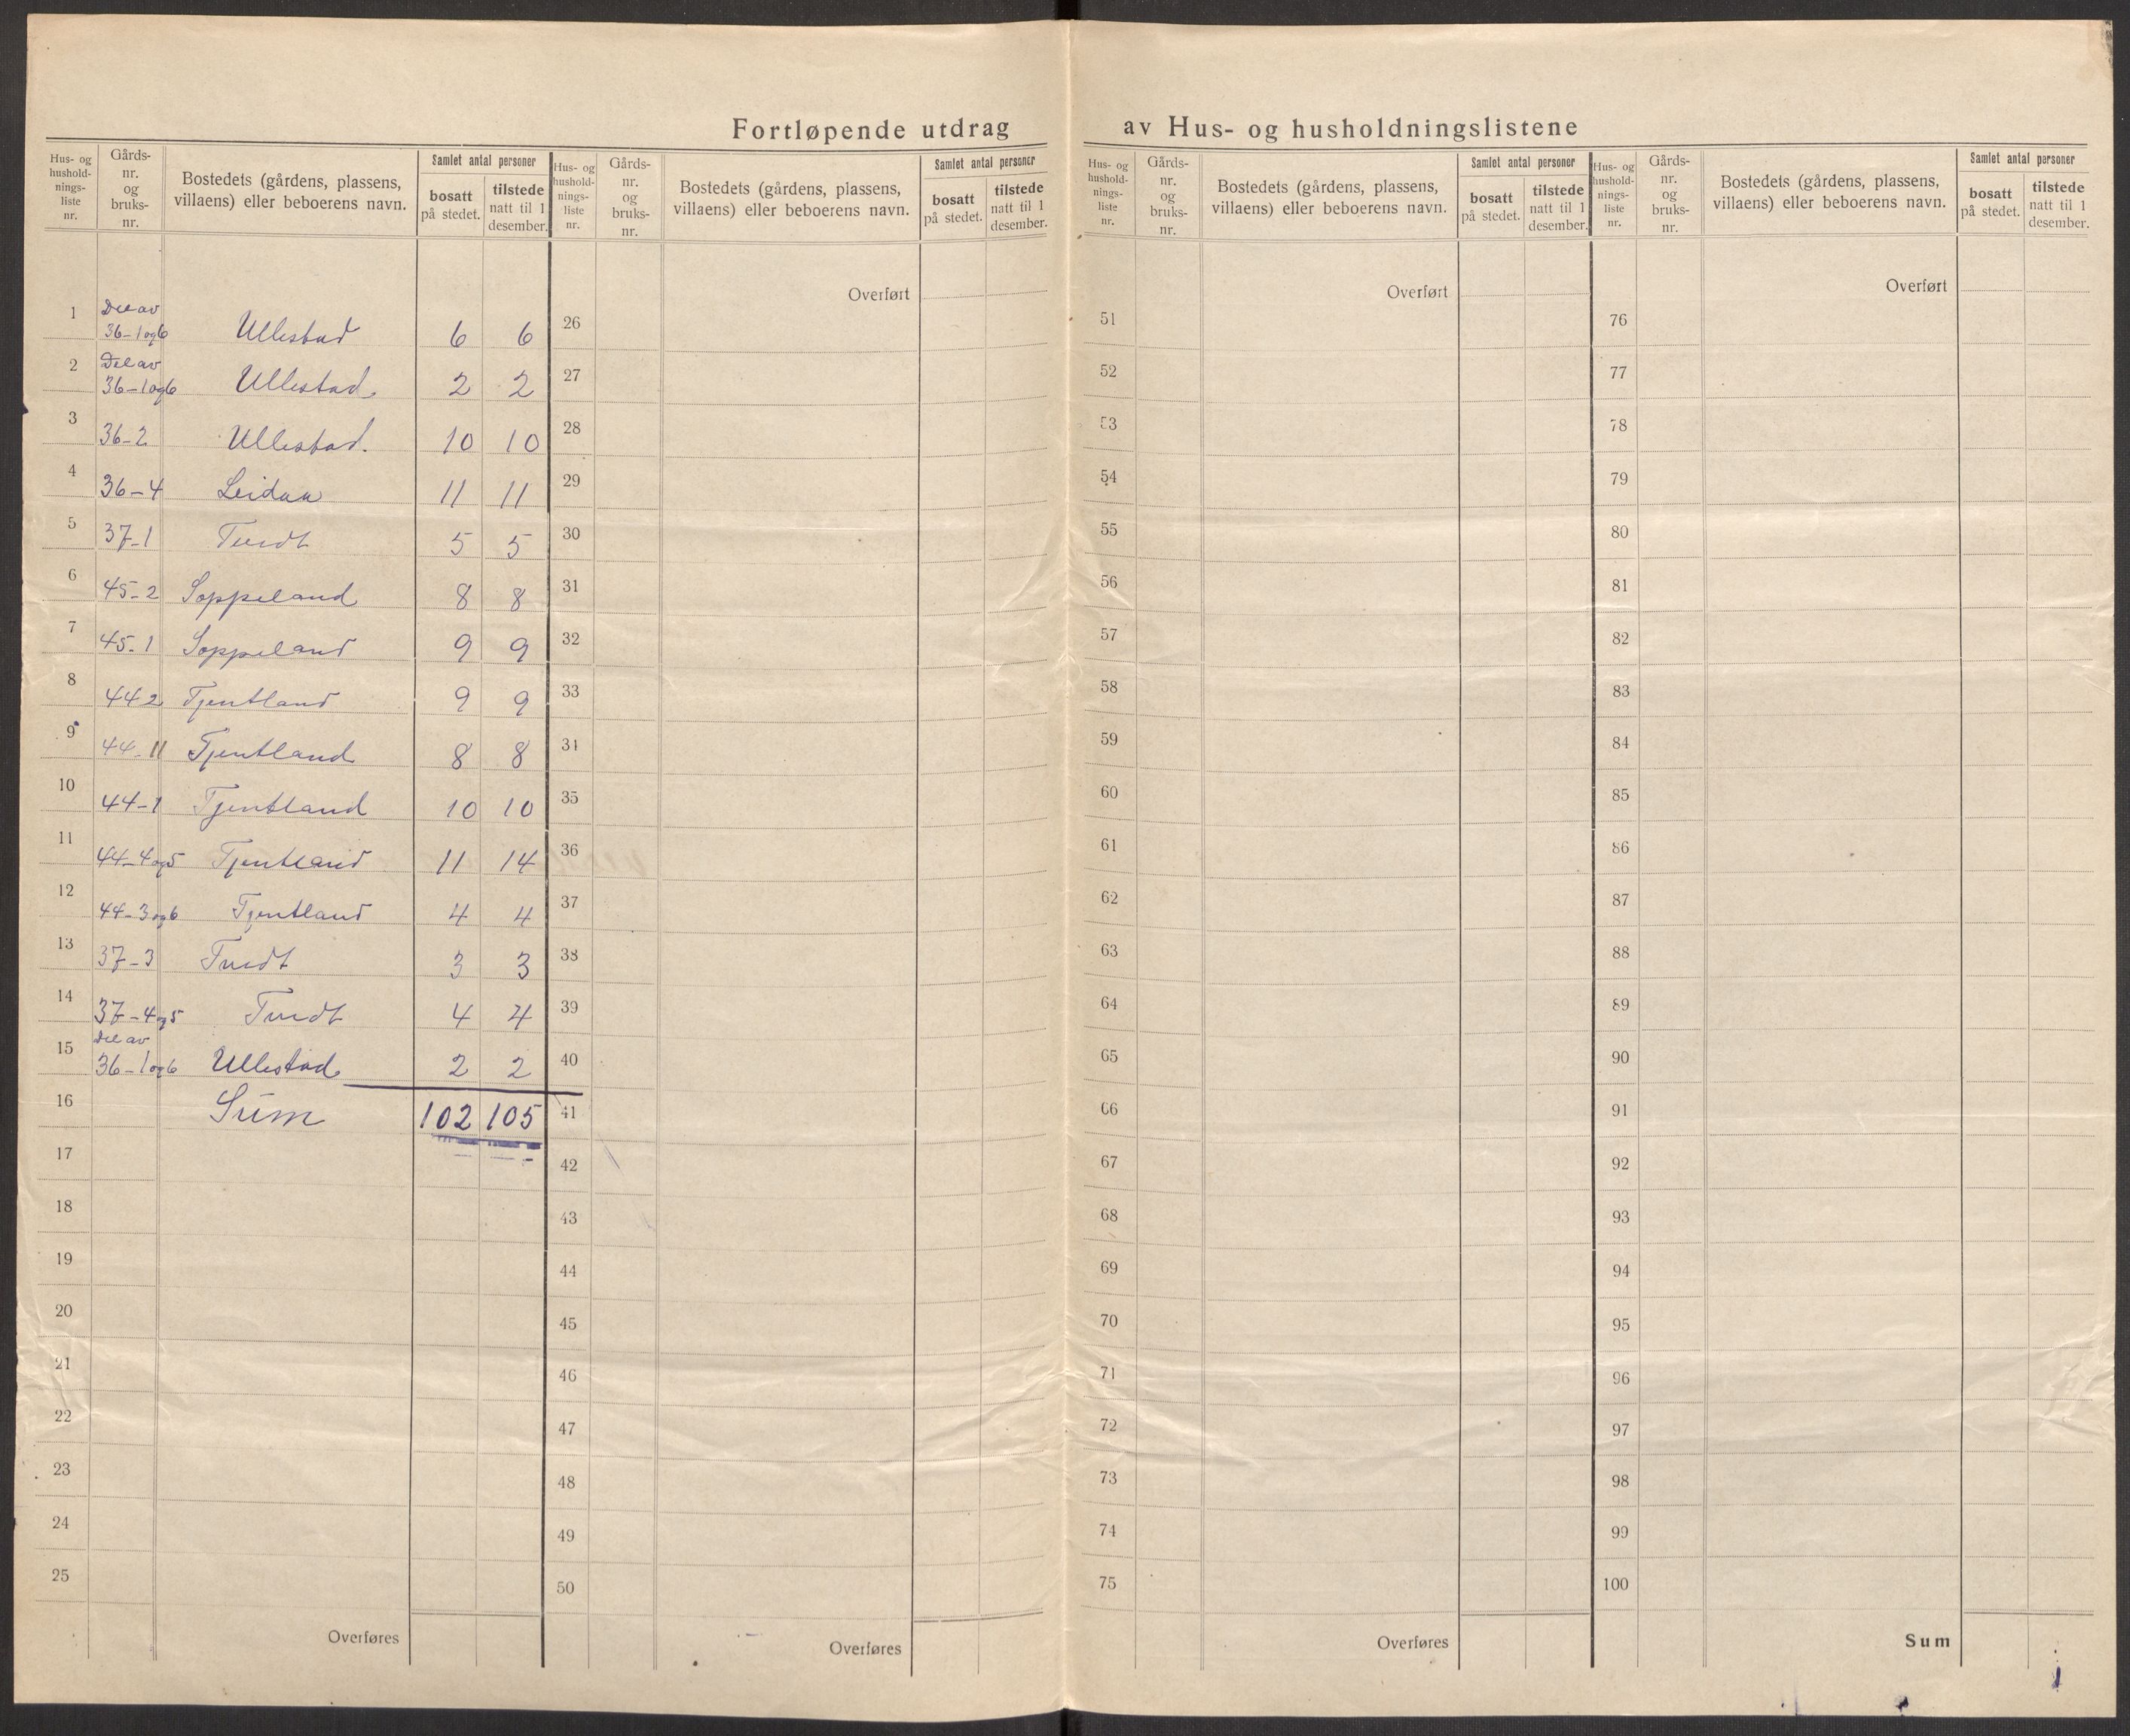 Fortløpende utdrag av Hus- og husholdningslistene
Hus- og husholdnings-liste nr. Gårds-nr. og bruks-nr. Bostedets (gårdens, plassens, villaens) eller beboerens navn. Samlet antal personer bosatt på stedet. tilstede natt til 1 desember.
1 Del av 36-1 og 6 Ullestad 6 6
2 Del av 36-1 og 6 Ullestad 2 2
3 36-2 Ullestad. 10 10
4 36-4 Leidaa 11 11
5 37-1 Tvedt 5 5
6 45-2 Soppeland 8 8
7 45-1 Soppeland 9 9
8 44 2 Tjentland 9 9
9 44-11 Tjentland 8 8
10 44-1 Tjentland 10 10
11 44-4 og 5 Tjentland 11 14
12 44-3 og 6 Tjentland 4 4
13 37-3 Tvedt 3 3
14 37-4 og 5 Tvedt 4 4
15 Del av 36-1 og 6 Ullestad 2 2
16 Sum 102 105
17
18
19
20
21
22
23
24
25
Overføres
Hus- og husholdnings-liste nr. Gårds-nr. og bruks-nr. Bostedets (gårdens, plassens, villaens) eller beboerens navn. Samlet antal personer bosatt på stedet. tilstede natt til 1 desember.
Overført
26
27
28
29
30
31
32
33
34
35
36
37
38
39
40
41
42
43
44
45
46
47
48
49
50
Overføres
Hus- og husholdnings-liste nr. Gårds-nr. og bruks-nr. Bostedets (gårdens, plassens, villaens) eller beboerens navn. Samlet antal personer bosatt på stedet. tilstede natt til 1 desember.
Overført
51
52
53
54
55
56
57
58
59
60
61
62
63
64
65
66
67
68
69
70
71
72
73
74
75
Overføres
Hus- og husholdnings-liste nr. Gårds-nr. og bruks-nr. Bostedets (gårdens, plassens, villaens) eller beboerens navn. Samlet antal personer bosatt på stedet. tilstede natt til 1 desember.
Overført
76
77
78
79
80
81
82
83
84
85
86
87
88
89
90
91
92
93
94
95
96
97
98
99
100
Sum